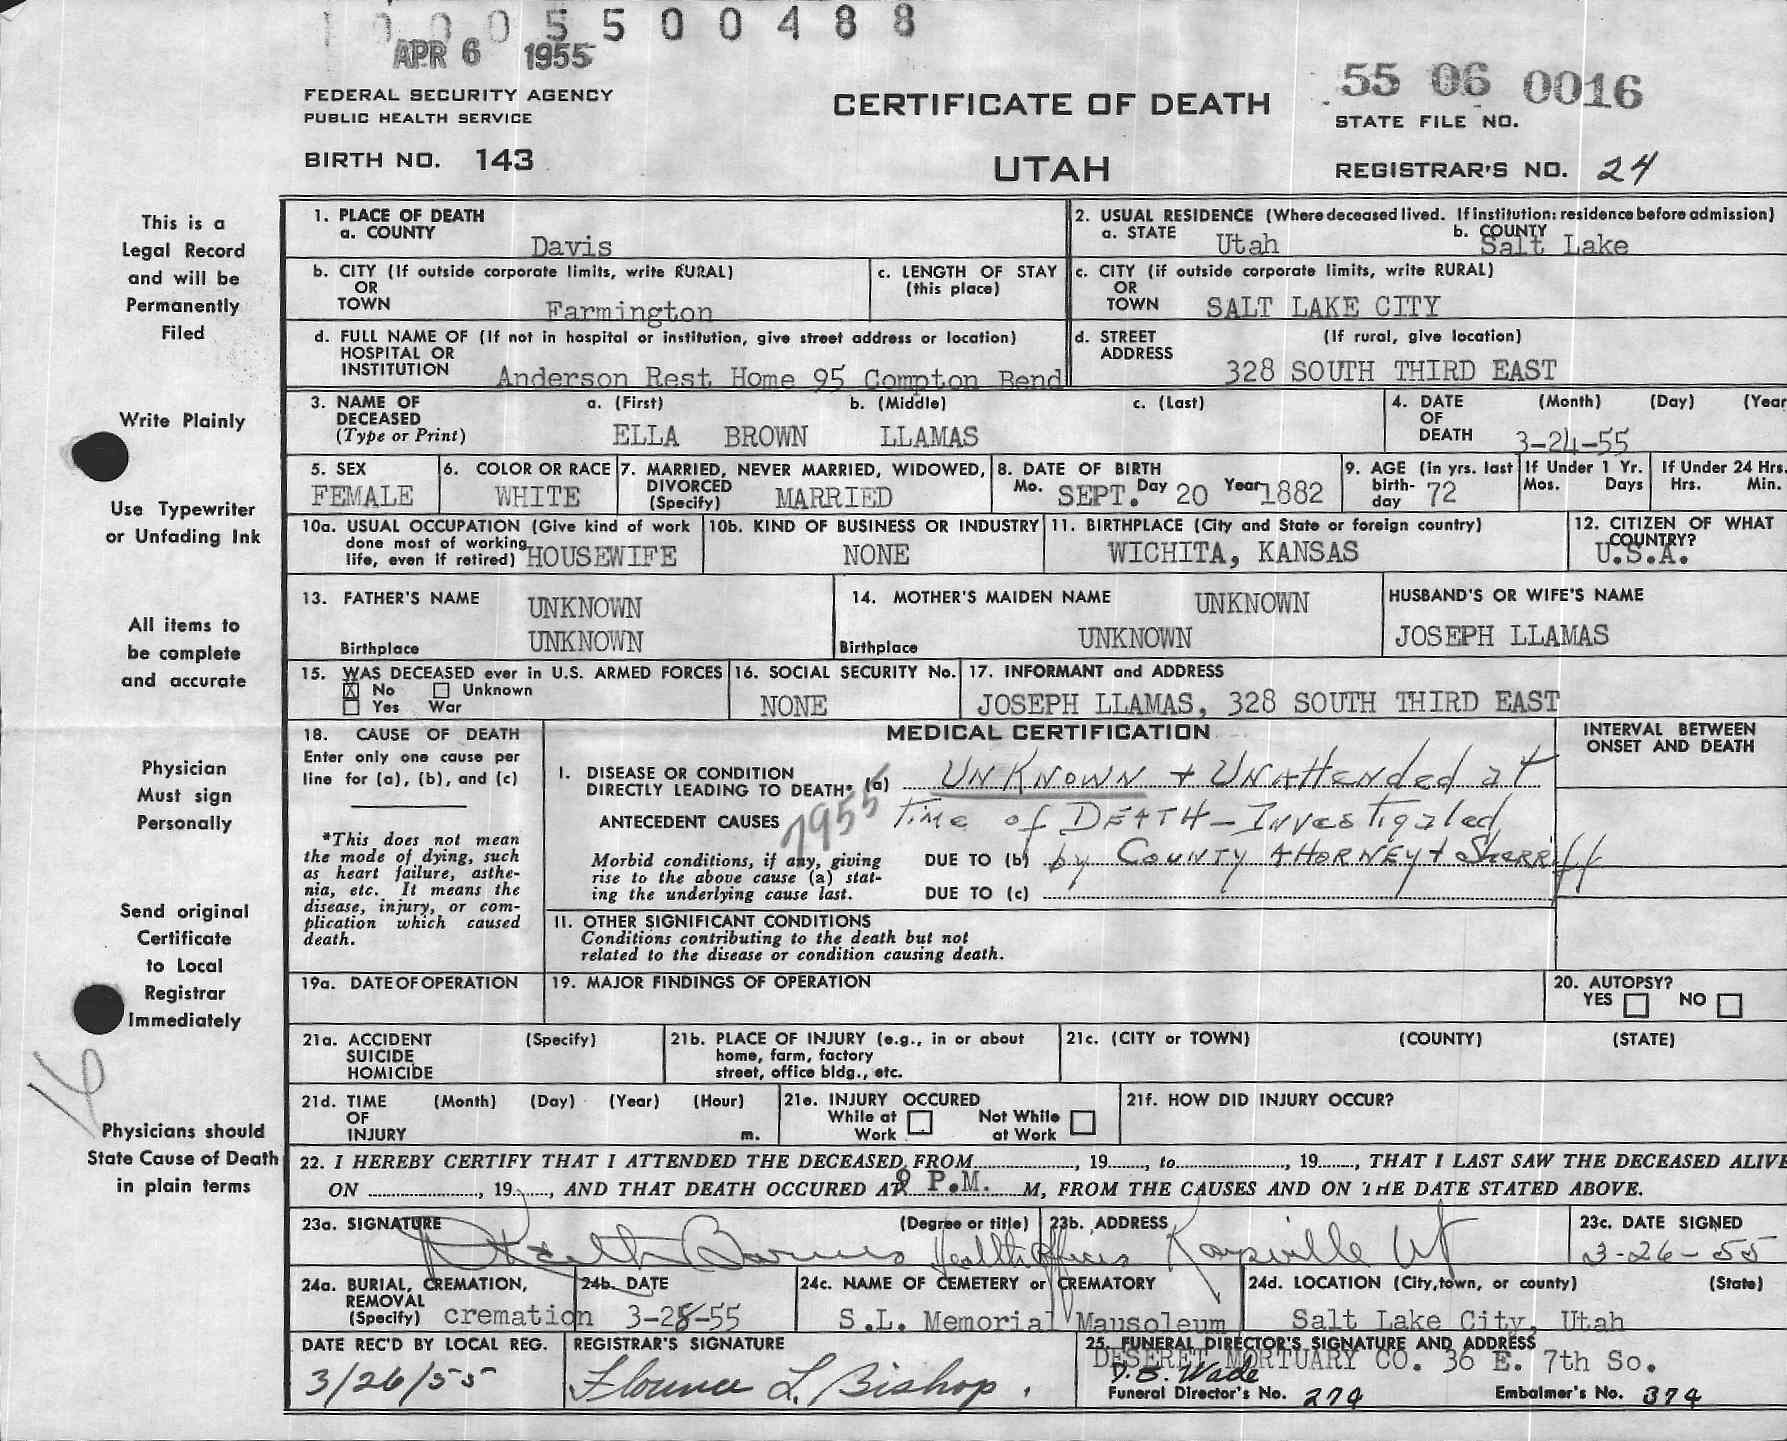 0005500488
APR 6 1955
55 06 0016
FEDERAL SECURITY AGENCY
PUBLIC HEALTH SERVICE
CERTIFICATE OF DEATH
STATE FILE NO.
BIRTH NO. 143
UTAH
REGISTRAR'S NO. 24
This is a
Legal Record
and will be
Permanently
Filed
Write Plainly
Use Typewriter
or Unfading Ink
All items to
be complete
and accurate
Physician
Must sign
Personally
Send original
Certificate
to Local
Registrar
Immediately
16
Physicians should
State Cause of Death
in plain terms
1. PLACE OF DEATH
a. COUNTY Davis
2. USUAL RESIDENCE (Where deceased lived. If institution: residence before admission)
a. STATE Utah b. COUNTY Salt Lake
b. CITY (If outside corporate limits, write RURAL)
OR
TOWN Farmington
c. LENGTH OF STAY
(this place)
c. CITY (if outside corporate limits, write RURAL)
OR
TOWN SALT LAKE CITY
d. FULL NAME OF (If not in hospital or institution, give street address or location)
HOSPITAL OR
INSTITUTION Anderson Rest Home 95 Compton Bend
d. STREET (If rural, give location)
ADDRESS
328 SOUTH THIRD EAST
3. NAME OF a. (First) b. (Middle) c. (Last)
DECEASED
(Type or Print) ELLA BROWN LLAMAS
4. DATE (Month) (Day) (Year
OF
DEATH 3-24-55
5. SEX
FEMALE
6. COLOR OR RACE
WHITE
7. MARRIED, NEVER MARRIED, WIDOWED,
DIVORCED
(Specify) MARRIED
8. DATE OF BIRTH
Mo. SEPT. Day 20 Year 1882
9. AGE (in yrs. last
birth-
day 72
If Under 1 Yr.
Mos. Days
If Under 24 Hrs.
Hrs. Min.
10a. USUAL OCCUPATION (Give kind of work
done most of working
life, even if retired) HOUSEWIFE
10b. KIND OF BUSINESS OR INDUSTRY
NONE
11. BIRTHPLACE (City and State or foreign country)
WICHITA, KANSAS
12. CITIZEN OF WHAT
COUNTRY?
U.S.A.
13. FATHER'S NAME UNKNOWN
Birthplace UNKNOWN
14. MOTHER'S MAIDEN NAME UNKNOWN
Birthplace UNKNOWN
HUSBAND'S OR WIFE'S NAME
JOSEPH LLAMAS
15. WAS DECEASED ever in U.S. ARMED FORCES
X No Unknown
Yes War
16. SOCIAL SECURITY No.
NONE
17. INFORMANT and ADDRESS
JOSEPH LLAMAS, 328 SOUTH THIRD EAST
18. CAUSE OF DEATH
Enter only one cause per
line for (a), (b), and (c)
*This does not mean
the mode of dying, such
as heart failure, asthe-
nia, etc. It means the
disease, injury, or com-
plication which caused
death.
MEDICAL CERTIFICATION
INTERVAL BETWEEN
ONSET AND DEATH
I. DISEASE OR CONDITION
DIRECTLY LEADING TO DEATH* (a) UNKNOWN + UNAttended at
ANTECEDENT CAUSES 7955 Time of DEATH - Investigated
Morbid conditions, if any, giving
rise to the above cause (a) stat-
ing the underlying cause last.
DUE TO (b) by COUNTY AttORNEY + Sherriff
DUE TO (c)
II. OTHER SIGNIFICANT CONDITIONS
Conditions contributing to the death but not
related to the disease or condition causing death.
19a. DATE OF OPERATION
19. MAJOR FINDINGS OF OPERATION
20. AUTOPSY?
YES NO
21a. ACCIDENT (Specify)
SUICIDE
HOMICIDE
21b. PLACE OF INJURY (e.g., in or about
home, farm, factory
street, office bldg., etc.
21c. (CITY or TOWN) (COUNTY) (STATE)
21d. TIME (Month) (Day) (Year) (Hour)
OF
INJURY m.
21e. INJURY OCCURED
While at Work Not While at Work
21f. HOW DID INJURY OCCUR?
22. I HEREBY CERTIFY THAT I ATTENDED THE DECEASED FROM , 19 , to , 19 , THAT I LAST SAW THE DECEASED ALIVE
ON , 19 , AND THAT DEATH OCCURED AT 9 P.M. M, FROM THE CAUSES AND ON THE DATE STATED ABOVE.
23a. SIGNATURE (Degree or title)
Health Officer
23b. ADDRESS
Kaysville Ut
23c. DATE SIGNED
3-26-55
24a. BURIAL, CREMATION,
REMOVAL
(Specify) cremation
24b. DATE
3-28-55
24c. NAME OF CEMETERY or CREMATORY
S.L. Memorial Mausoleum
24d. LOCATION (City, town, or county) (State)
Salt Lake City, Utah
DATE REC'D BY LOCAL REG.
3/26/55
REGISTRAR'S SIGNATURE
Florence L. Bishop.
25. FUNERAL DIRECTOR'S SIGNATURE AND ADDRESS
DESERET MORTUARY CO. 36 E. 7th So.
D. B. Wade
Funeral Director's No. 274 Embalmer's No. 374